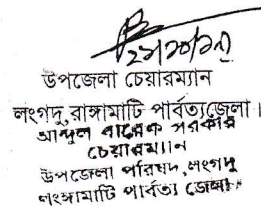 উপজেলা চেয়ারম্যান
লংগদু, রাঙ্গামাটি পার্বত্যজেলা।
আব্দুল বারেক সরকার
চেয়ারম্যান
উপজেলা পরিষদ, লংগদু
পার্বত্য জেলা।